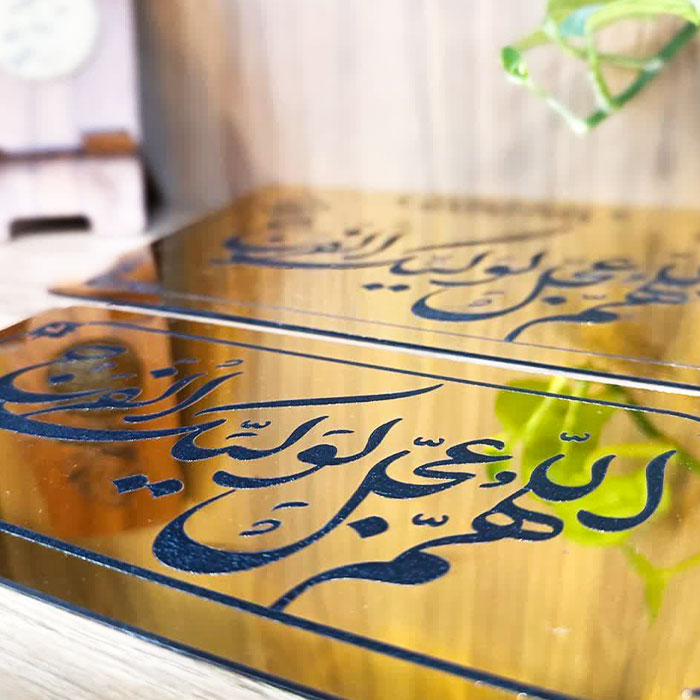 اللّهُمَّ عَجِّل لِوَلیِّکَ الفَرَج
اللّهُمَّ عَجِّل لِوَلیِّکَ الفَرَج